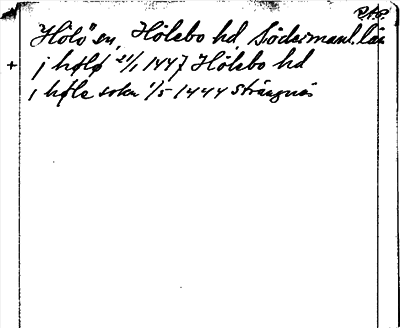 R.A.P.
Hölö sn, Hölebo hd, Södermanl. län
+ j hølø 21/1 1447 Hölebo hd
i høle sokn 1/5 1444 Strängnäs